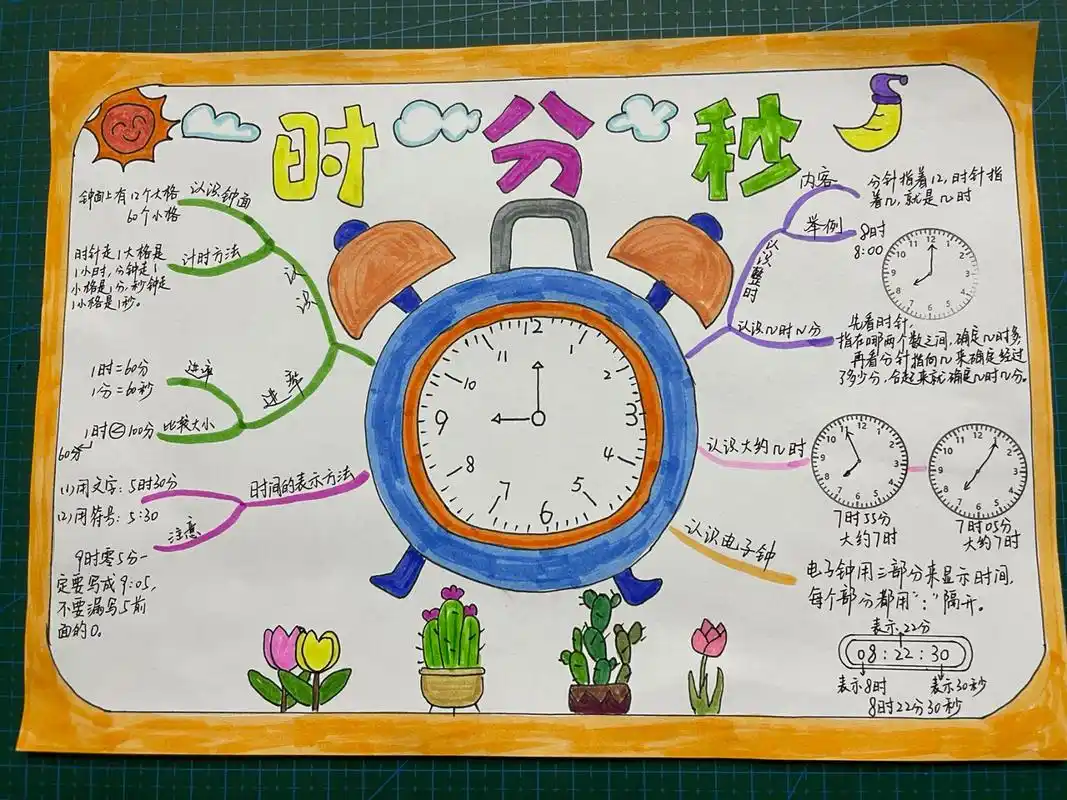 时 分 秒
认识
认识钟面
钟面上有12个大格
60个小格
计时方法
时针走1大格是
1小时,分针走1
小格是1分.秒钟走
1小格是1秒。
进率
进率
1时=60分
1分=60秒
比较大小
1时<100分
60分
时间的表示方法
(1)用文字:5时30分
(2)用符号:5:30
注意
9时零5分一
定要写成9:05,
不要漏写5前
面的0。
12
1
2
3
4
5
6
7
8
9
10
11
认识整时
内容
分针指着12,时针指
着几,就是几时
举例
8时
8:00
12
1
2
3
4
5
6
7
8
9
10
11
认识几时几分
先看时针,
指在哪两个数之间,确定几时多
再看分针指向几来确定经过
了多少分,合起来就确定几时几分。
认识大约几时
12
1
2
3
4
5
6
7
8
9
10
11
7时55分
大约7时
12
1
2
3
4
5
6
7
8
9
10
11
7时05分,
大约7时
认识电子钟
电子钟用三部分来显示时间,
每个部分都用“:”隔开。
表示22分
08:22:30
表示8时
表示30秒
8时22分30秒